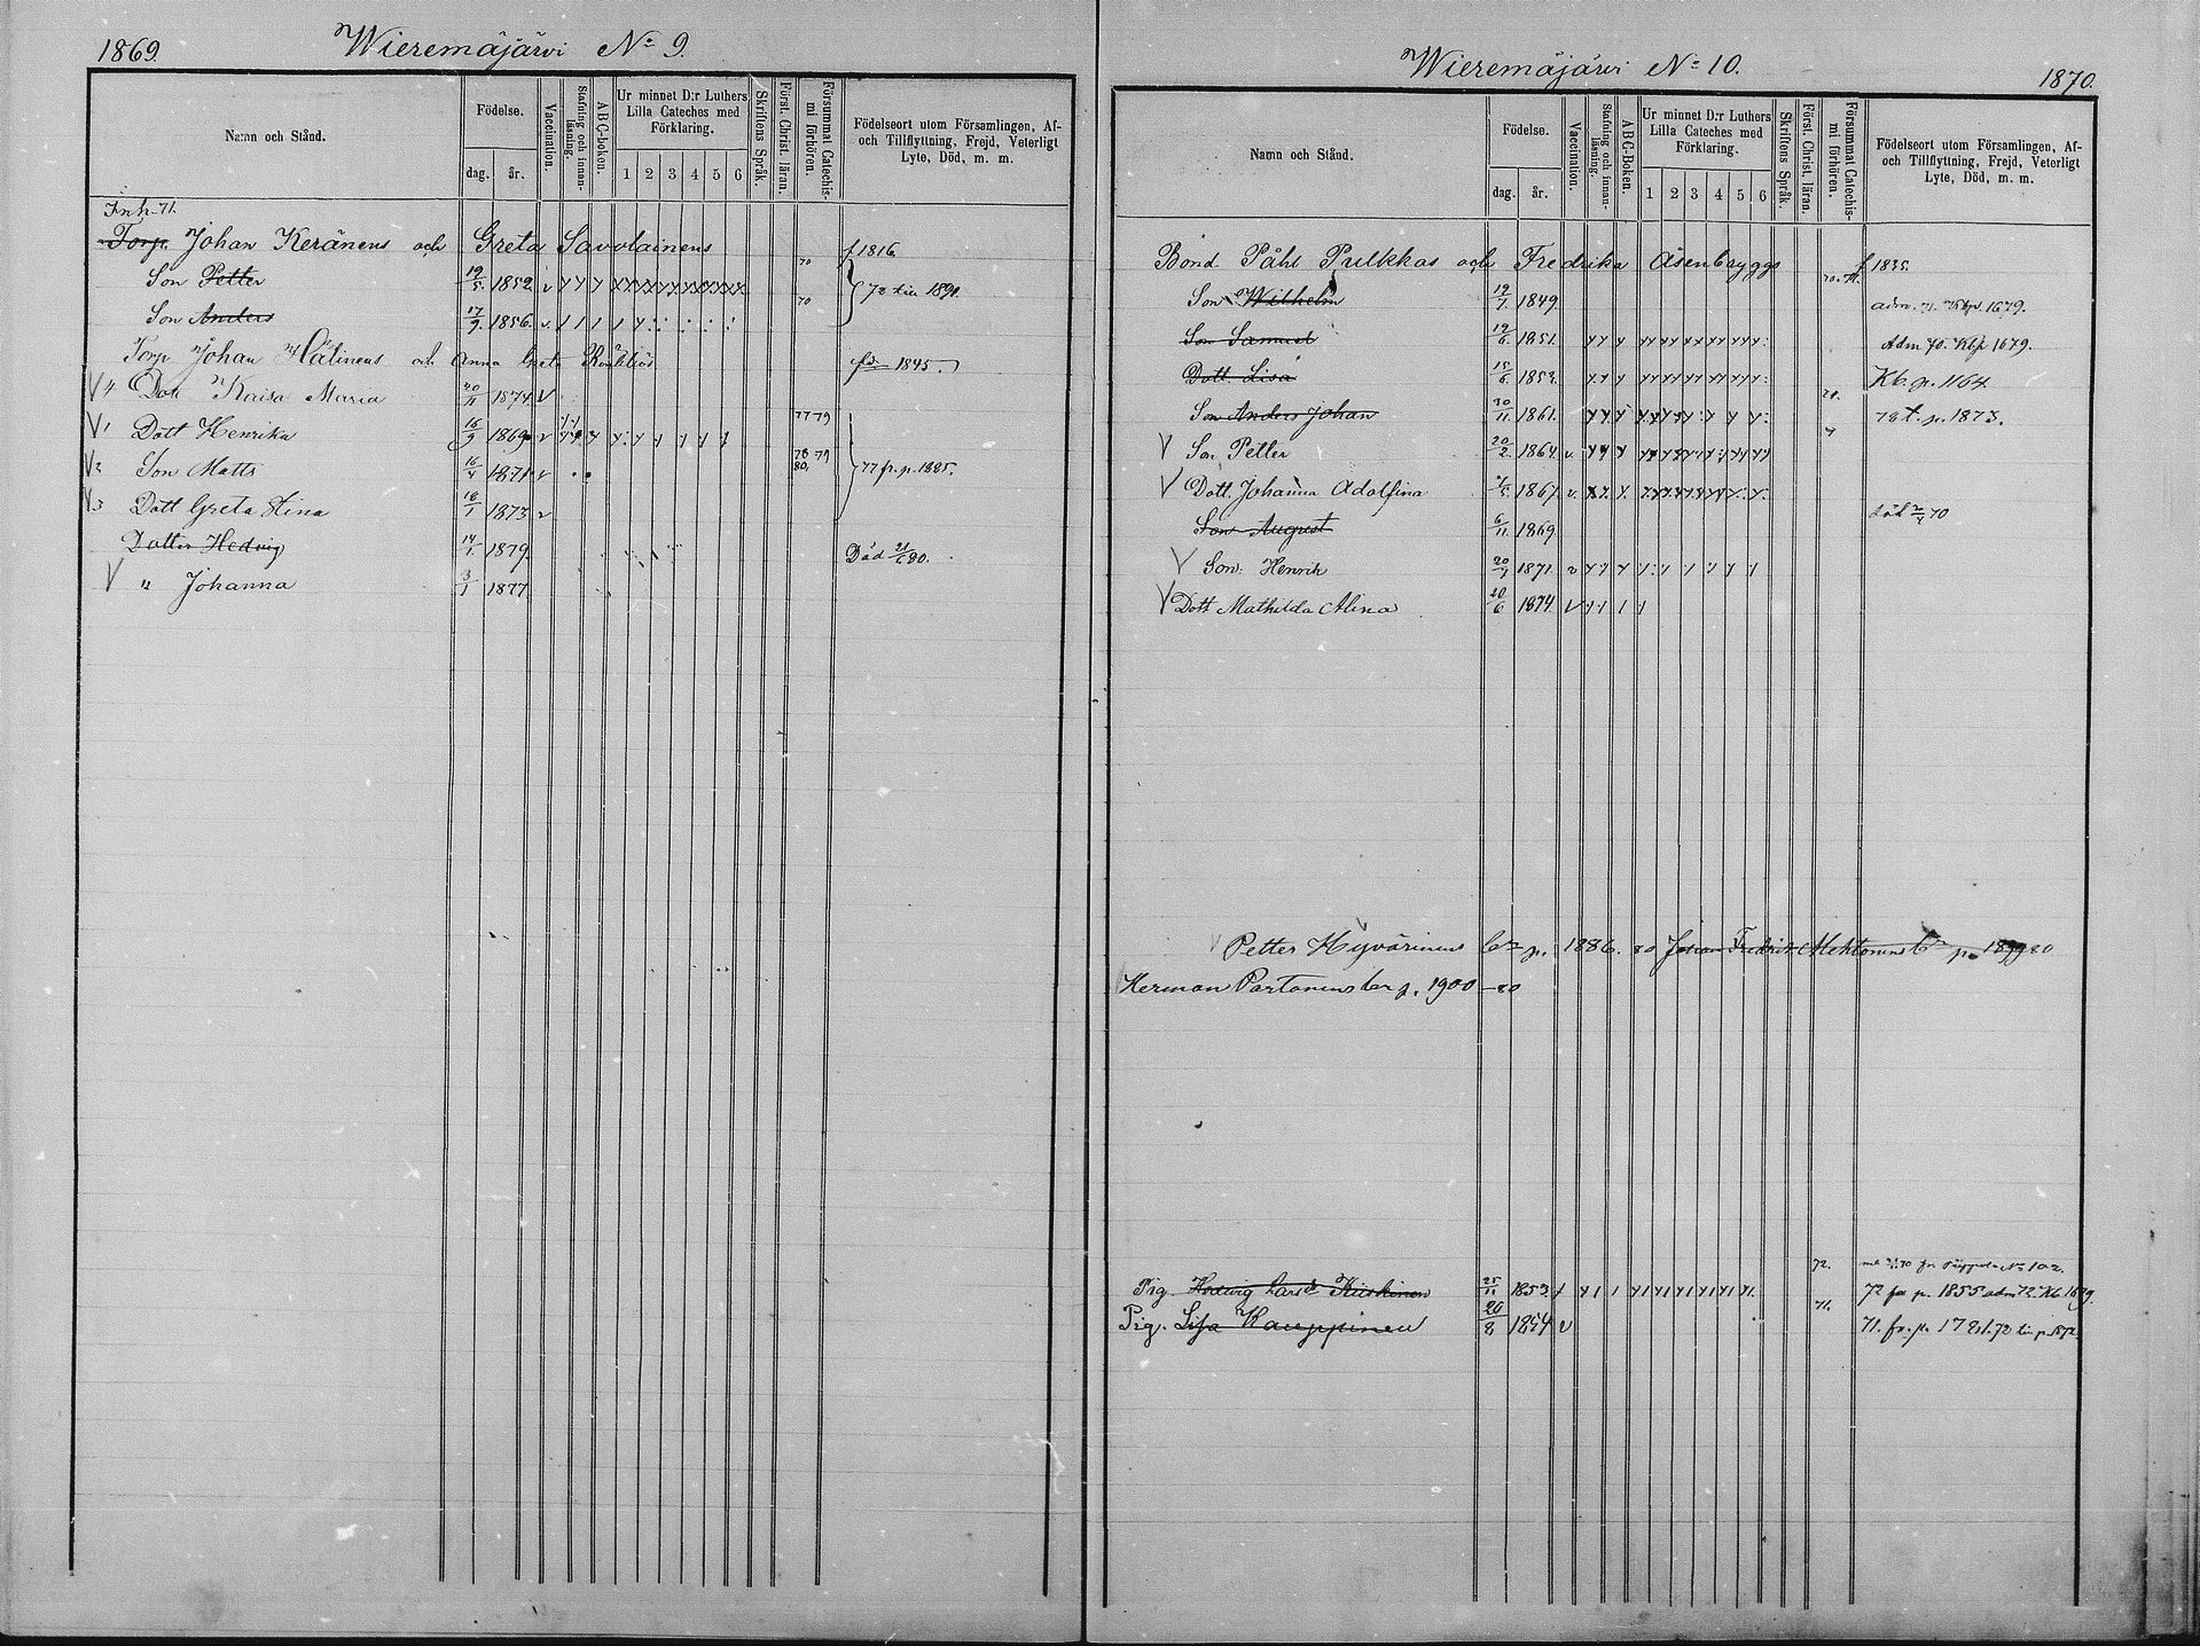 1869. Wieremäjärvi No 9.
Namn och Stånd.
Födelse.
dag. år.
Vaccination.
Stafning och innan-läsning.
ABC-boken.
Ur minnet D:r Luthers Lilla Cateches med Förklaring.
1 2 3 4 5 6
Skriftens Språk.
Först. Christ. läran.
Försummat Catechis-mi förhören.
Födelseort utom Församlingen, Af- och Tillflyttning, Frejd, Veterligt Lyte, Död, m. m.
Inh. 71.
Torp. Johan Keränens och Greta Savolainens f. 1816.
Son Petter 19/5. 1852. v 70 72 till 1890.
Son Anders 17/9. 1856. v. 70
Torp Johan Hätinens och Anna Greta 1845.
Dott Kaisa Maria 20/11 1874 v
V1 Dott Henrika 16/9 1869 v 77 79
V2 Son Matts 16/4 1871 v 78 79 80. 77 fr. p. 1885.
V3 Dott Greta Stina 18/1 1873 v
Dotter Hedvig 14/1. 1879. Död 21/6 80.
V " Johanna 3/1 1877.
Wieremäjärvi No 10. 1870.
Namn och Stånd.
Födelse.
dag. år.
Vaccination.
Stafning och innan-läsning.
ABC-Boken.
Ur minnet D:r Luthers Lilla Cateches med Förklaring.
1 2 3 4 5 6
Skriftens Språk.
Först. Christ. läran.
Försummat Catechis-mi förhören.
Födelseort utom Församlingen, Af- och Tillflyttning, Frejd, Veterligt Lyte, Död, m. m.
Bond. Påhl Pulkkas och Fredrika Åsenbryggs f. 1835.
Son Wilhelm 19/7. 1849. 70. 71. adm. 71. Kbp. 1679.
Son Samuel 19/6 1851. Adm 70. Kbp 1679.
Dott. Lisa 15/6. 1859. Kb. p. 1164
Son Anders Johan 30/11. 1861. 70. 78 t. p. 1873.
V Son Petter 20/2. 1864. v.
V Dott. Johanna Adolfina 1867. v.
Son August 6/11. 1869. död 2/4 70
V Son: Henrik 20/7 1871. v
V Dott Mathilda Alina 20/6 1874. V
Petter Hyvärinens br p. 1886. 80 Johan Fredrik Mehtonens br p. 80
Herman Partanens br p. 1900 -80
72.
Pig. Hedwig Larsdr Kuiskinen 25/11 1853. 72 fr p. 1855 adm 72. Kb. 1679.
Pig. Lisa Kauppinen 20/8 1854 v 71. 71. fr. p. 72 till p. 1872